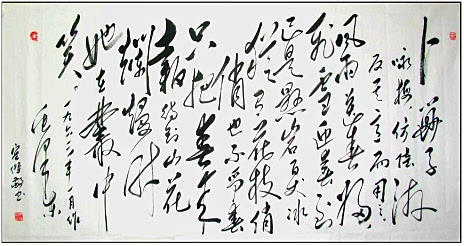 卜算子
咏梅
反其意而用之
风雨送春归
飞雪迎春到
已是悬岩百丈冰
犹有花枝俏
俏也不争春
只把春来
报待到山花
烂熳时
她在丛中
笑。一九六二年一月作
毛泽东
敬书